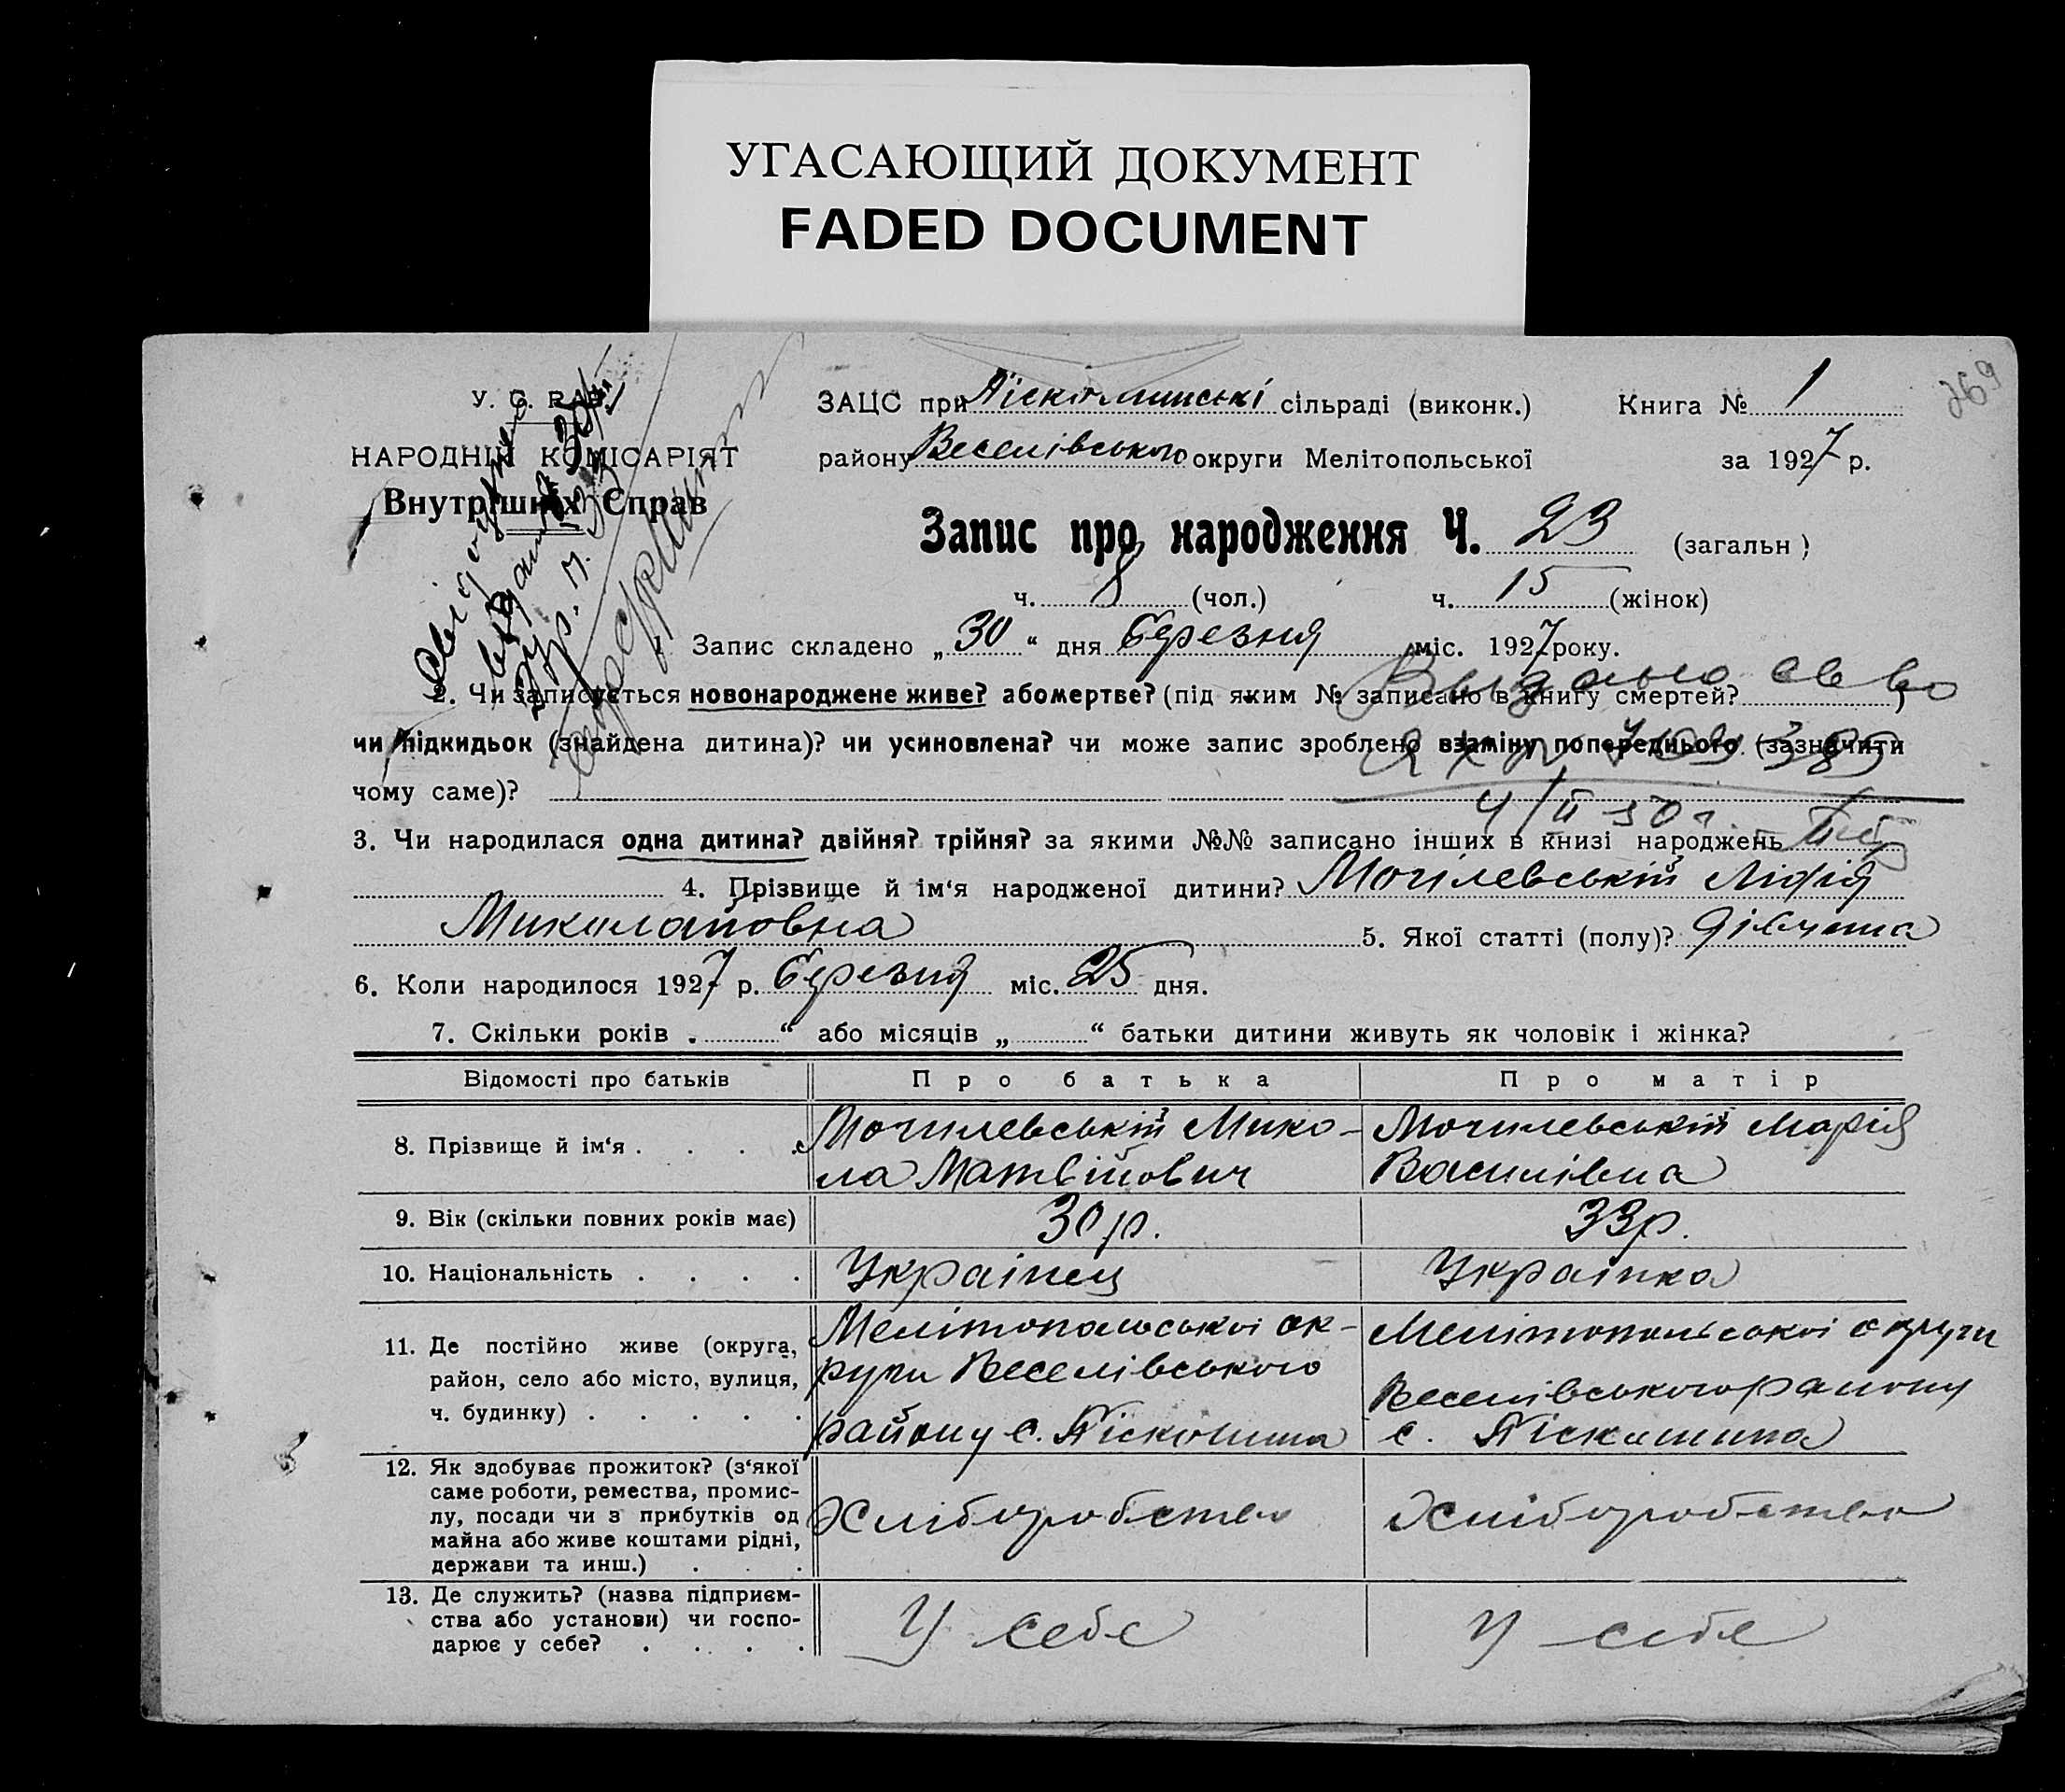 УГАСАЮЩИЙ ДОКУМЕНТ
FADED DOCUMENT
269
У. С. Р. Р.
НАРОДНІЙ КОМІСАРІЯТ
Внутрішніх Справ
ЗАЦС при Піскошинські сільраді (виконк.) Книга № 1
району Веселівського округи Мелітопольської за 1927 р.
Запис про народження Ч. 23 (загальн)
ч. 8 (чол.) ч. 15 (жінок)
1. Запис складено „30“ дня березня міс. 1927 року.
Видано св во
2. Чи записується новонароджене живе? або мертве? (під яким № записано в книгу смертей?)
чи підкидьок (знайдена дитина)? чи усиновлена? чи може запис зроблено взаміну попереднього (зазначити
чому саме)?
4/II 30 г.
3. Чи народилася одна дитина? двійня? трійня? за якими №№ записано інших в книзі народжень
4. Прізвище й ім‘я народженої дитини? Могілевській Лідія
Миколаповна 5. Якої статті (полу)? дівчина
6. Коли народилося 1927 р. березня міс. 25 дня.
7. Скільки років „ “ або місяців „ “ батьки дитини живуть як чоловік і жінка?
Відомості про батьків Про батька Про матір
8. Прізвище й ім‘я . . . . Могилевській Мико- Могилевській Марія
ла Матвійович Василівна
9. Вік (скільки повних років має) 30 р. 33 р.
10. Національність . . . . Українец Українка
11. Де постійно живе (округа, Мелітопольської ок- Мелітопольської округи
район, село або місто, вулиця, руги Веселівського Веселівського району
ч. будинку) . . . . . району с. Піскошина с. Піскошина
12. Як здобуває прожиток? (з‘якої
саме роботи, ремества, промис-
лу, посади чи з прибутків од Хліборобство Хліборобство
майна або живе коштами рідні,
держави та инш.) . . .
13. Де служить? (назва підприєм-
ства або установи) чи госпо- У себе У себе
дарює у себе? . . . .